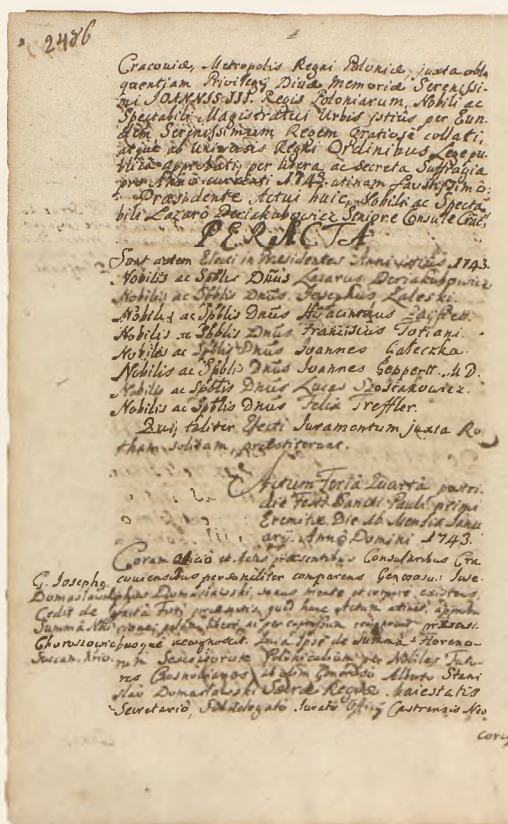 2486
Cracoviæ, Metropolis Regni Poloniæ, juxta obloquentjam
Privilegij Divæ Memoriæ Serenissimi
JOANNIS III. Regis Poloniarum, Nobili ac
Spectabili Magistratui Urbis istius per Eundem
Serenissimum Regem gratiose collati,
atque ab universis Regni Ordinibus Lege publica
approbati, per libera ac Secreta Suffragia
pro Anno currenti 1743. utinam faustissimo:
Præsidente Actui huic, Nobili ac Spectabili
Lazaro Deriakubowicz Seniore Consule Crac:
PERACTA
Sunt autem Electi in Præsidentes Anni istius 1743.
Nobilis ac Sptblis Dnus Lazarus Deriakubowicz
Nobilis ac Spblis Dnus Josephus Zaleski.
Nobilis ac Spblis Dnus Hyacinthus
Nobilis ac Spblis Dnus Franciscus Toriani.
Nobilis ac Spblis Dnus Joannes Gałeczka.
Nobilis ac Spblis Dnus Joannes Geppertt. M D.
Nobilis ac Spblis Dnus Lucas Szostakowicz.
Nobilis ac Spblis Dnus Felix Treffler.
Quij taliter Electi Juramentum juxta Rotham
solitam, præstiterunt.
Actum Feria Quarta postridie
Festi Sancti Pauli primi
Eremitæ Die 16 Mensis Januarij
Anno Domini 1743.
Coram officio et Actis præsentibus Consularibus Cracoviensibus
personaliter comparens Generosus Josephus
Domaslawski, sanus mente et corpore existens,
G. Josephg
Domaslawski
Cedit de
Summa
Choroszowic
Succam.
quod hunc Actum attinet,
Summa Florenorum
Polonicalium per Nobiles
et olim Generoso Alberto Stanislao
Domaslawski Sacræ Regiæ Maiestatis
Secretario, Subdelegato Jurato Officij Castrensis Neo